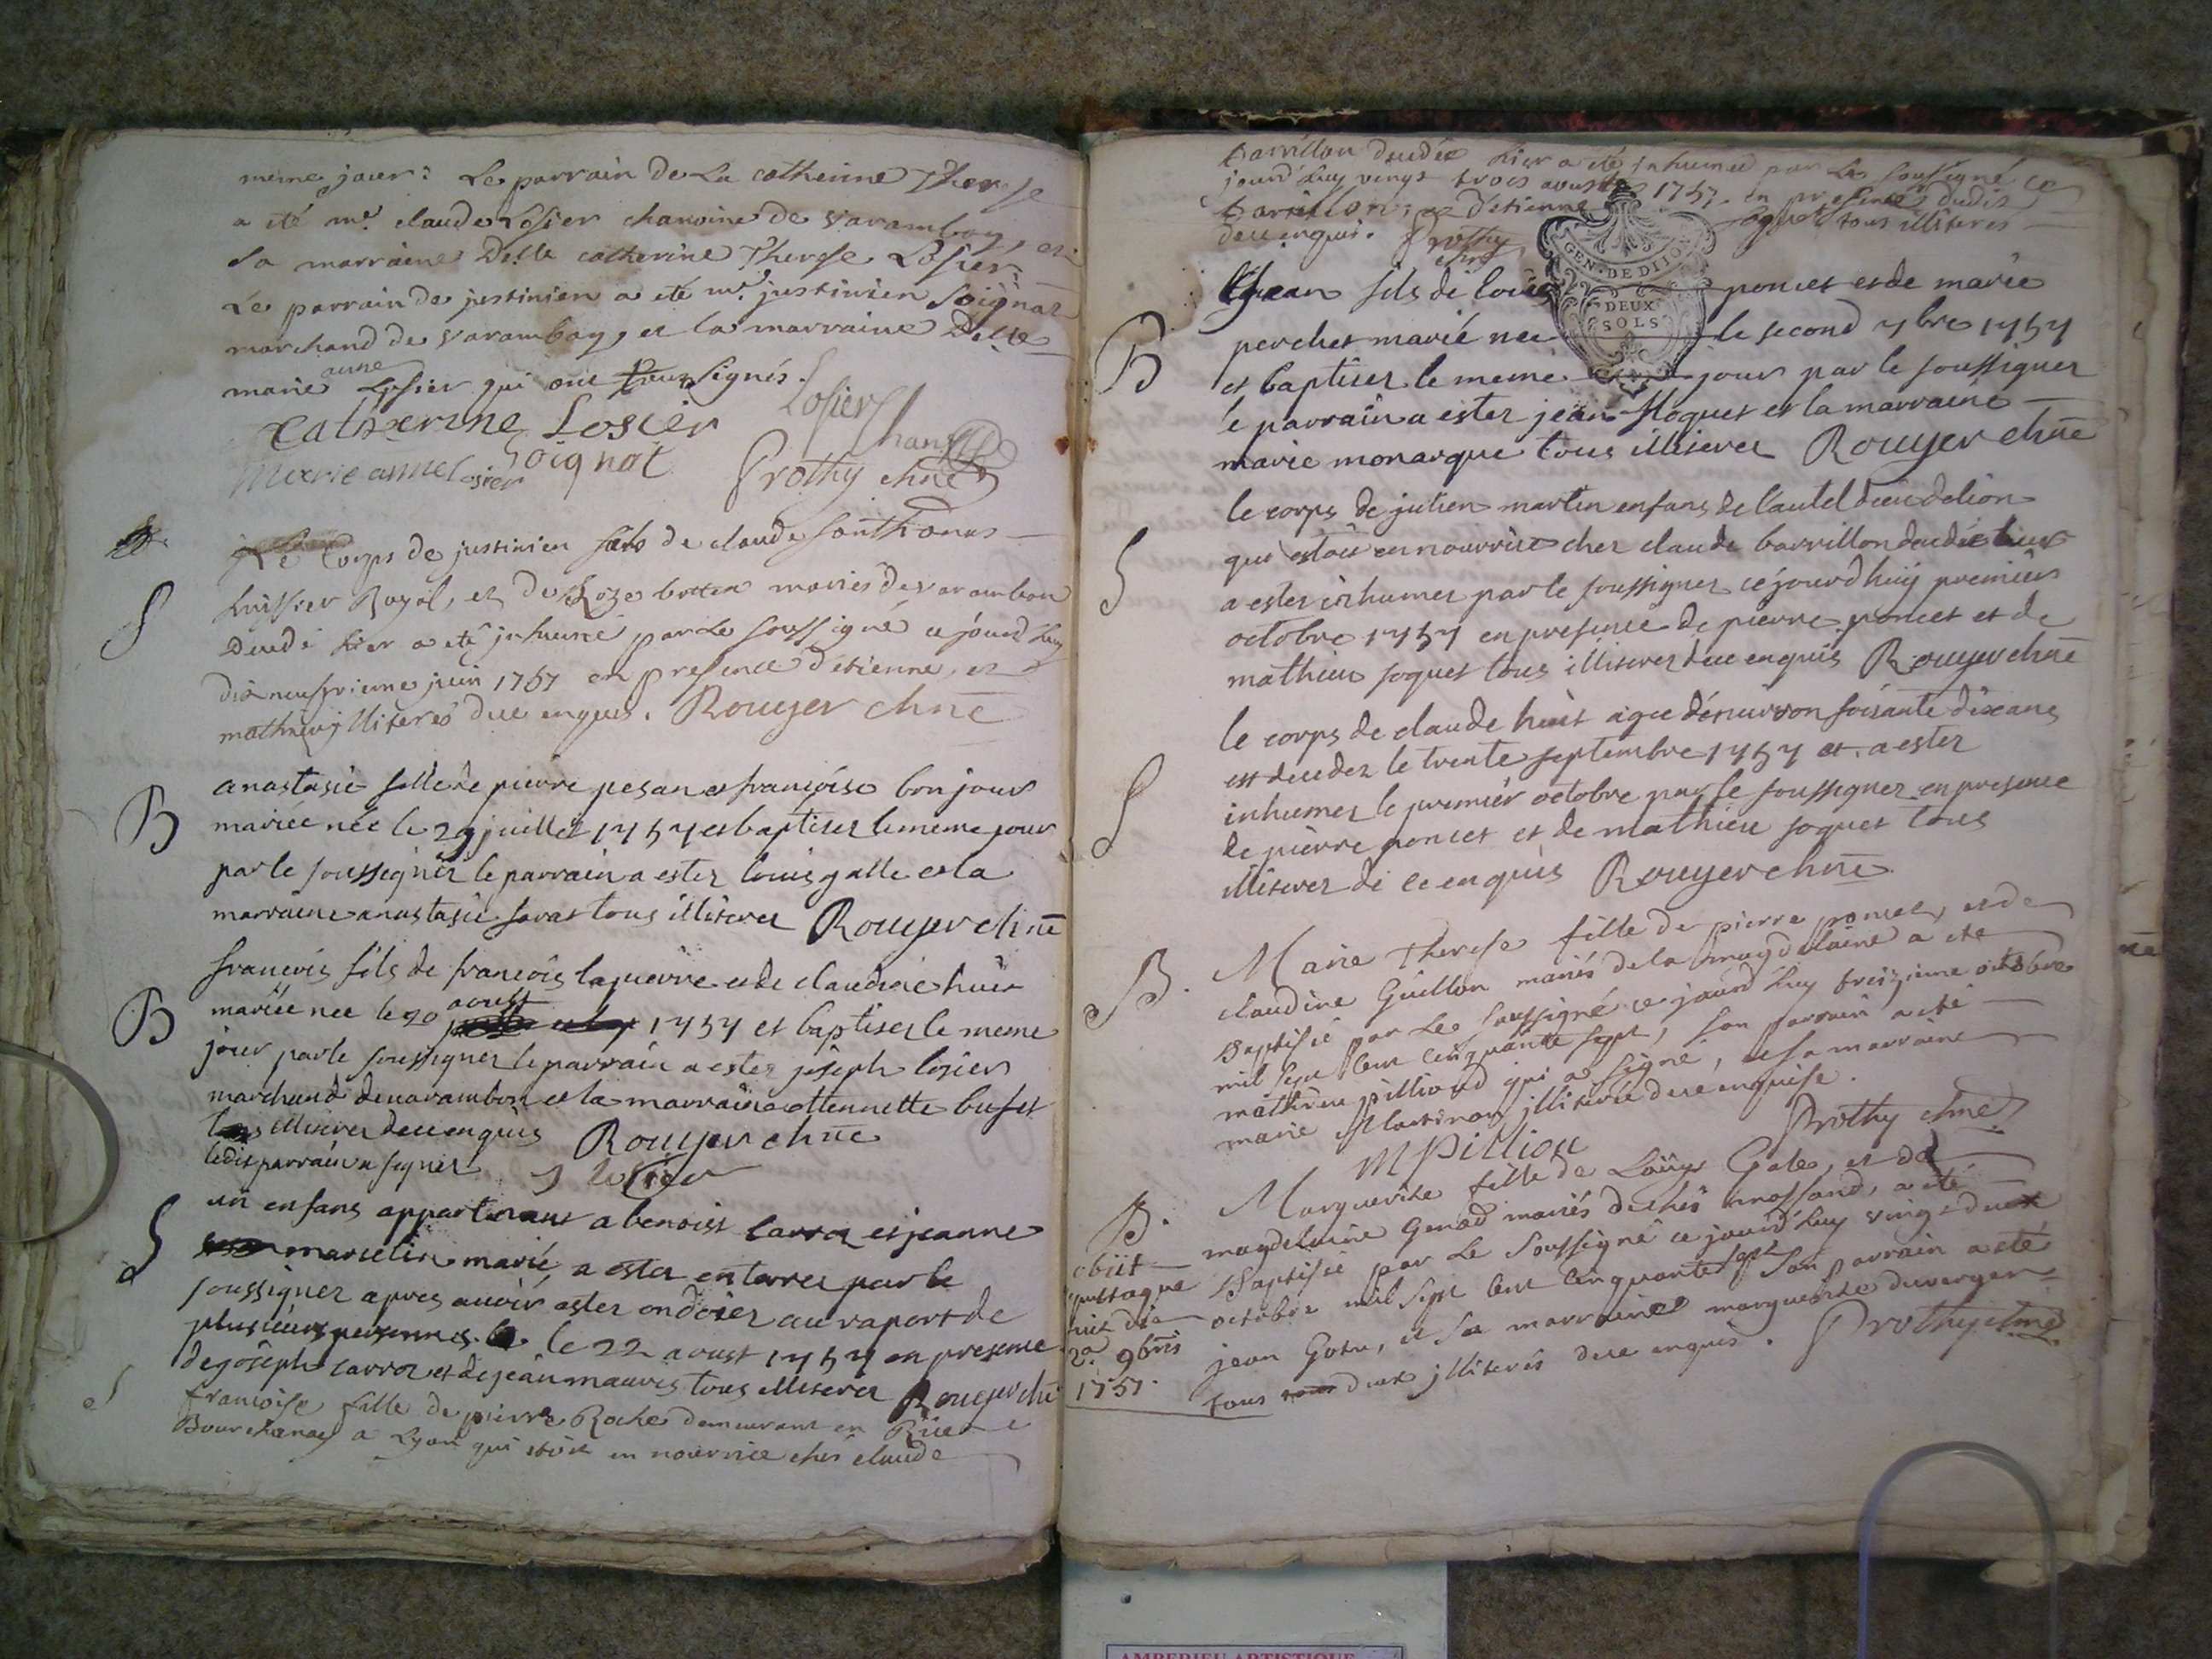 meme jour: Le parrain de La catherine Therese
a eté mr. claude Losier chanoine de varambon, et
Sa marraine Delle catherine Therese Losier.
Le parrain de justinien a eté mr. justinien Soignat
marchand de varambon, et la marraine Delle
anne
marie Losier qui ont signés.
Catherine Losier Losier Chan
Marie anne Losier Soignat Prothy chne
Le Corps de justinien fils de claude Santhonas
huissier Royal, et de Roze mariés de varambon
Decedé hier a eté inhumé par Le soussigné ce jourd'huy
dix neufvieme juin 1757 en presence d'etienne, et
mathieu jlliterés de ce enquis. Rouyer chne
B
anastasie fille de pierre pesan et françoise bonjour
mariée née le 29 juillet 1757 et baptiser le meme jour
par le soussigner le parrain a ester louis galle et la
marraine anastasie favat tous illiterer Rouyer chne
B
francois fils de francois laguerre et de claudine huit
aoust
mariée nee le 20 1757 et baptiser le meme
jour par le soussigner le parrain a ester joseph losier
marchand de varambon et la marraine ettennette bufet
illiterer de ce enquis Rouyer chne
ledit parrain a signer J losier
S
un enfans appartenant a benoist carroz et jeanne
marcelin marié a ester enterrer par le
soussigner apres avoir ester ondoier au raport de
plusieurs personnes le 22 aoust 1757 en presence
de joseph carroz et de jean mauvis tous illiterer Rouyer chne
S
francoise fille de pierre Roche demeurant en Rue
Bourchanay a Lyon qui etoit en nourrice chés claude
barrillon decedée hier a eté inhumée par Le soussigné ce
jourd'huy vingt trois aoust 1757. en presence dudit
barrillon, et d'etienne foquet tous illiterés
de ce enquis. Prothy chne
GEN. DE DIJON
DEUX
SOLS
B
jean fils de louis poncet et de marie
perchet marié nee le second 7bre 1757
et baptiser le meme jour par le soussigner
le parrain a ester jean floquet et la marraine
marie monarque tous illiterer Rouyer chne
S
le corps de julien martin enfans de l'autel dieu de lion
qui estoit en nourrice cher claude barrillon decedé hier
a ester inhumer par le soussigner ce jourd'huy premier
octobre 1757 en presence de pierre poncet et de
mathieu foquet tous illiterer de ce enquis Rouyer chne
S
le corps de claude huit agée d'environ soisante dix ans
est deceder le trente septembre 1757 et a ester
inhumer le premier octobre par le soussigner en presence
de pierre poncet et de mathieu foquet tous
illiterer de ce enquis Rouyer chne
B.
Marie Therese fille de pierre poncet, et de
claudine Guillon mariés de la magdelaine a eté
Baptisée par Le soussigné ce jourd'huy treizieme octobre
mil sept cent cinquante sept, son parrain a eté
mathieu pilliond qui a signé, et sa marraine
marie Martinon jlliterée de ce enquise.
M Pillion Prothy chne
B.
Marguerite fille de Loüys Gale, et de
magdelaine Genod mariés de chés mossand, a eté
Baptisée par Le soussigné ce jourd'huy vingt deux
octobre mil sept cent cinquante sept son parrain a eté
jean Gotu, et sa marraine marguerite duverger
tous deux jlliterés de ce enquis. Prothy chne
obiit
die
2a. 9bris
1757.
AMBERIEU ARTISTIQUE